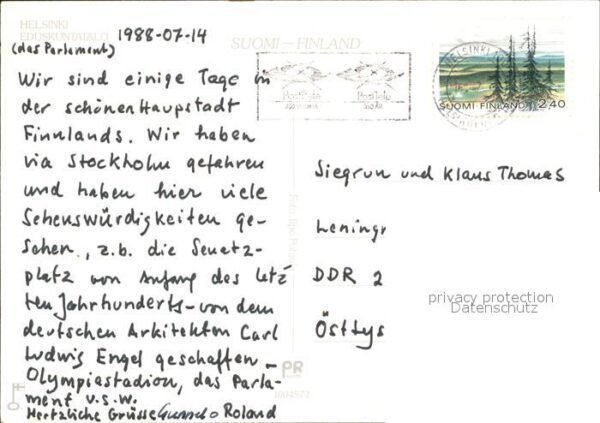 HELSINKI
EDUSKUNTATALO 1988-07-14
(das Parlament)
SUOMI – FINLAND
Wir sind einige Tage in
der schönen Haupstadt
Finnlands. Wir haben
via Stockholm gefahren
und haben hier viele
Sehenswürdigkeiten ge-
sehen, z.b. die Senetz-
platz von Anfang des letz
ten Jahrhunderts - von dem
deutschen Arkitekten Carl
Ludwig Engel geschaffen -
Olympiastadion, das Parla-
ment u.s.w.
Hertzliche Grüsse Roland
HELSINKI
PostTele PostTele
350 350
SUOMI FINLAND 2,40
Siegrun und Klaus Thomas
Leningr
DDR 2
Östtys
privacy protection
Datenschutz
PR